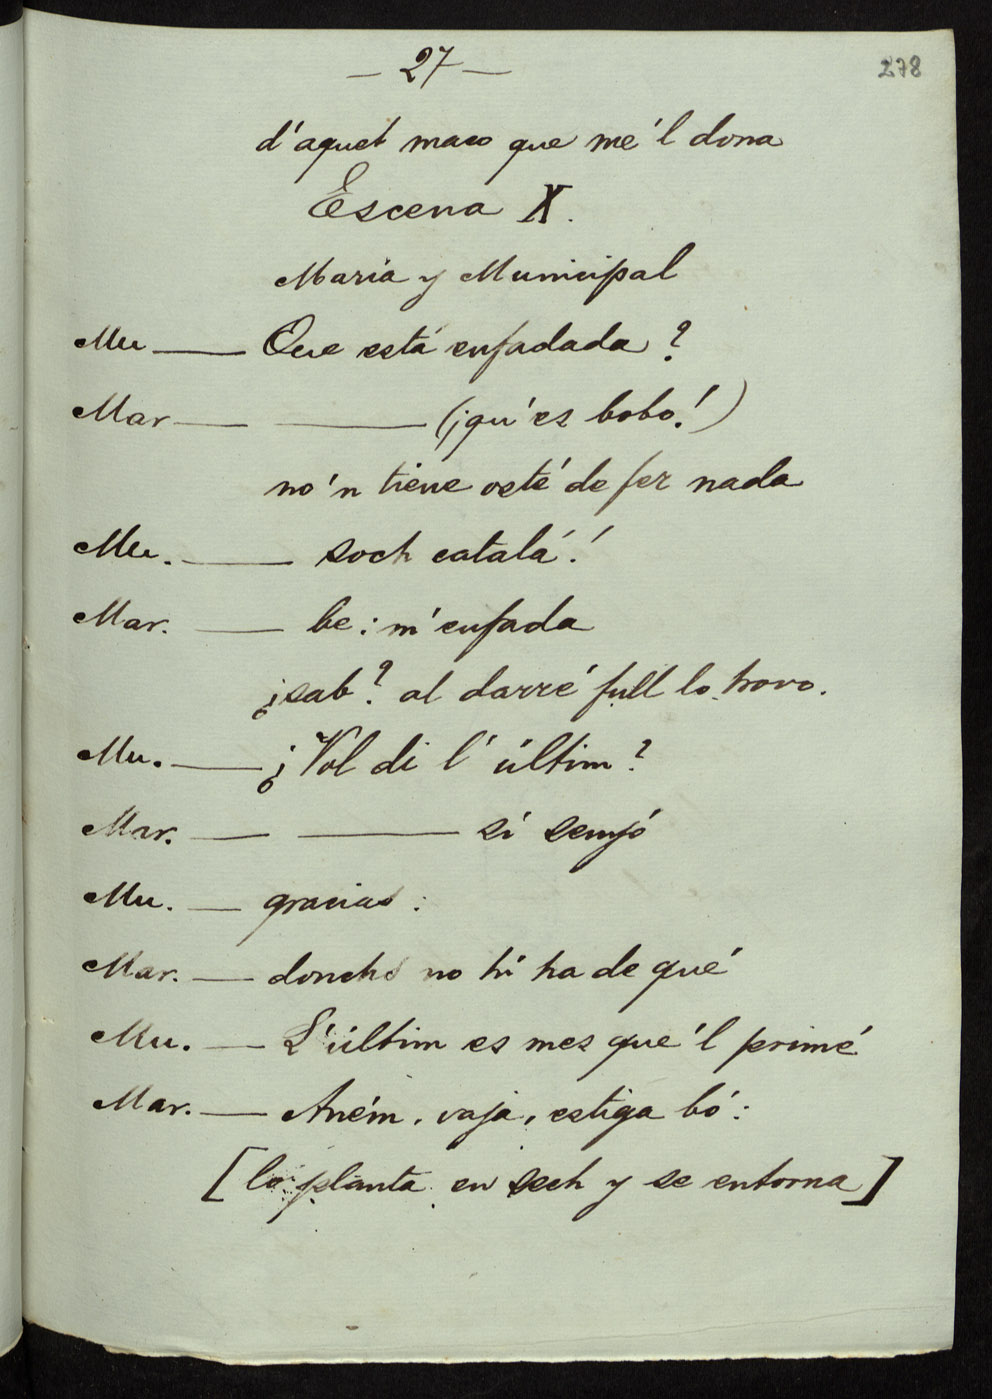 — 27 —
278
d'aquet maco que me'l dona
Escena X.
Maria y Municipal
Mu —— Que está enfadada?
Mar —— —— (¡qu'es bobo!)
no'n tiene osté de fer nada
Mu. —— soch catalá!
Mar. —— be: m'enfada
¿sab? al darré full lo trovo.
Mu. —— ¿Vol di l'últim?
Mar. —— —— sí senyó
Mu. — gracias:
Mar. — donchs no hi ha de qué
Mu. — L'últim es mes que'l primé
Mar. — Aném, vaja, estiga bó:
[lo planta en sech y se entorna]